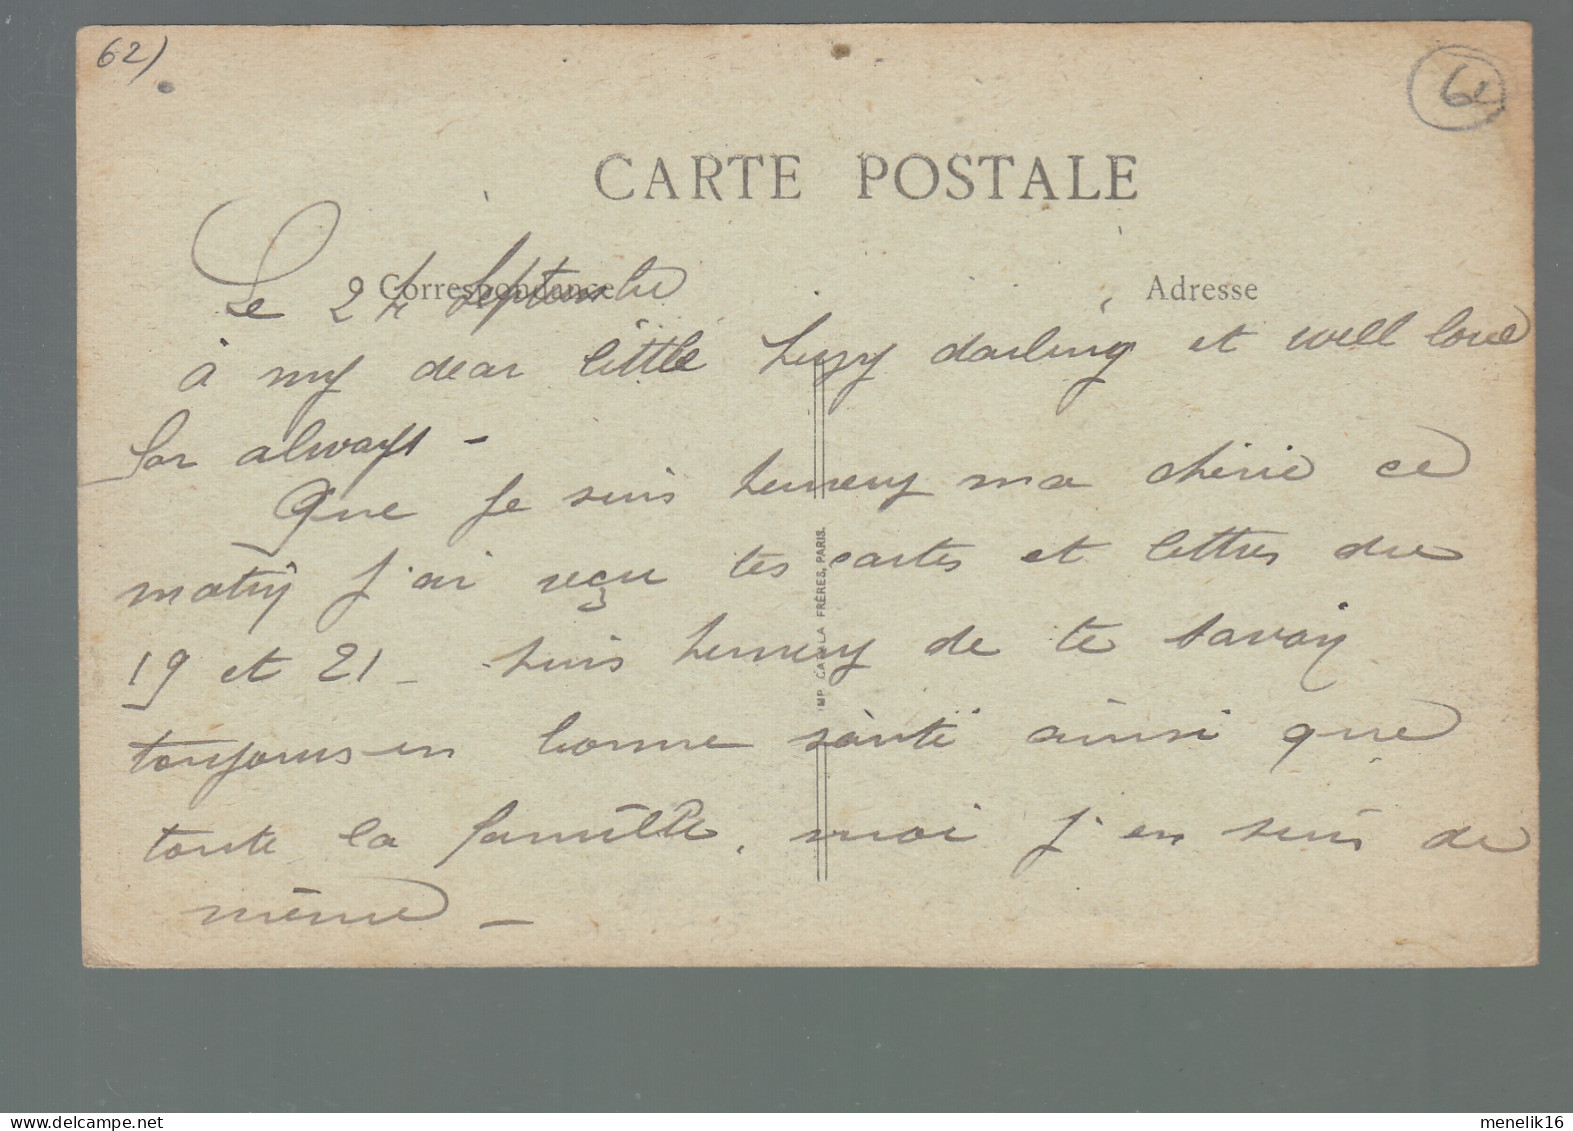 62)
62
CARTE POSTALE
Correspondance
Adresse
Le 24 Septembre
à my dear little Lizzy darling et well love
for always -
Que je suis heureux ma chérie ce
matin j'ai reçu tes cartes et lettres du
19 et 21 - suis heureux de te savoir
toujours en bonne santé ainsi que
toute la famille, moi j'en suis de
même -
IMP. CATALA FRÈRES, PARIS.
delcampe.net
menelik16